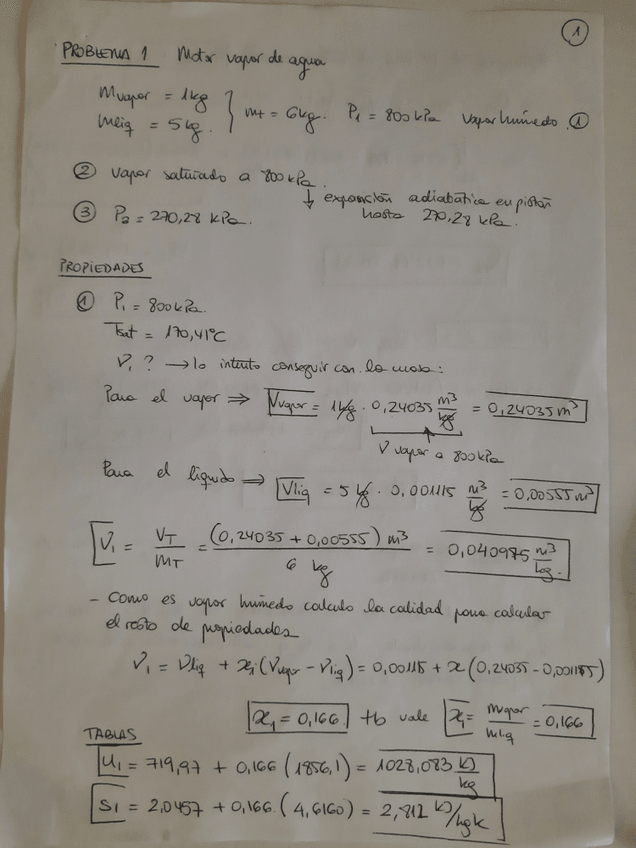 1
PROBLEMA 1 Motor vapor de agua
Mvapor = 1kg } mt = 6kg. P1 = 800kPa Vapor húmedo. ①
mliq = 5kg.
② Vapor saturado a 800kPa.
↓ expansión adiabática en pistón
hasta 270,28 kPa.
③ P2 = 270,28 kPa.
PROPIEDADES
① P1 = 800kPa.
Tsat = 170,41°C
V1 ? → lo intento conseguir con la masa:
Para el vapor ⇒ Vvapor = 1kg · 0,24035 m³/kg = 0,24035 m³
V vapor a 800kPa
Para el líquido ⇒ Vliq = 5 kg · 0,001115 m³/kg = 0,00555 m³
V1 = VT/MT = (0,24035 + 0,00555) m³ / 6 kg = 0,040975 m³/kg.
- Como es vapor húmedo calculo la calidad para calcular
el resto de propiedades
V1 = Vliq + x1 (Vvapor - Vliq) = 0,00115 + x (0,24035 - 0,001115)
x1 = 0,166 tb vale x1 = mvapor/mliq = 0,166
TABLAS
u1 = 719,97 + 0,166 (1856,1) = 1028,083 kJ/kg
s1 = 2,0457 + 0,166 (4,6160) = 2,812 kJ/kgk